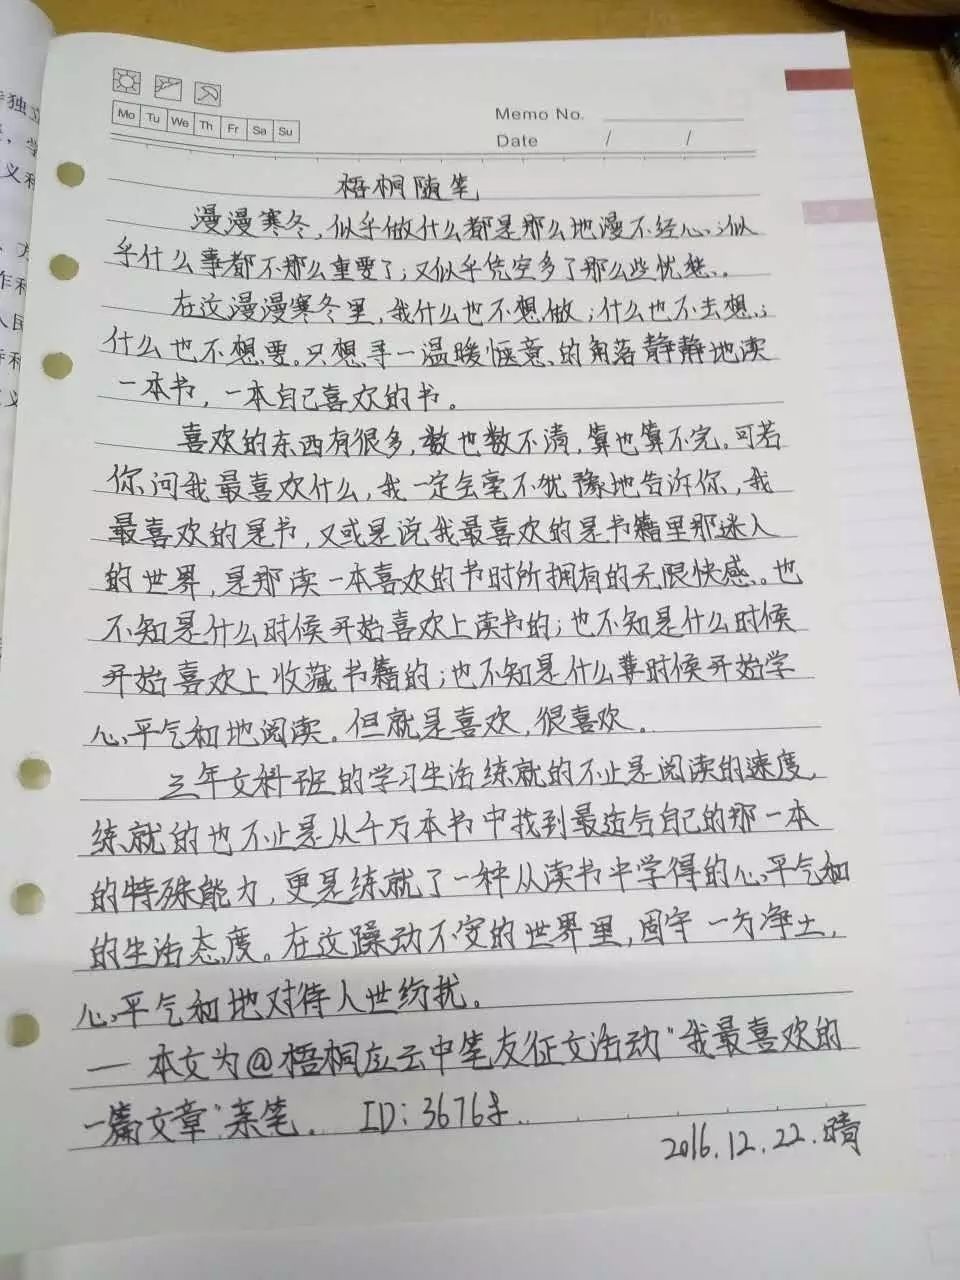 Mo Tu We Th Fr Sa Su
Memo No.
Date / /
梧桐随笔
漫漫寒冬，似乎做什么都是那么地漫不经心；似
乎什么事都不那么重要了；又似乎凭空多了那么些忧愁。
在这漫漫寒冬里，我什么也不想做；什么也不去想；
什么也不想要。只想寻一温暖惬意的角落静静地读
一本书，一本自己喜欢的书。
喜欢的东西有很多，数也数不清，算也算不完。可若
你问我最喜欢什么，我一定会毫不犹豫地告诉你，我
最喜欢的是书，又或是说我最喜欢的是书籍里那迷人
的世界，是那读一本喜欢的书时所拥有的无限快感。也
不知是什么时候开始喜欢上读书的；也不知是什么时候
开始喜欢上收藏书籍的；也不知是什么时候开始学
心平气和地阅读。但就是喜欢，很喜欢。
三年文科班的学习生活练就的不止是阅读的速度，
练就的也不止是从千万本书中找到最适合自己的那一本
的特殊能力，更是练就了一种从读书中学得的心平气和
的生活态度。在这躁动不安的世界里，固守一方净土，
心平气和地对待人世纷扰。
— 本文为@梧桐应云中笔友征文活动"我最喜欢的
一篇文章"亲笔。 ID：3676多
2016.12.22.晴